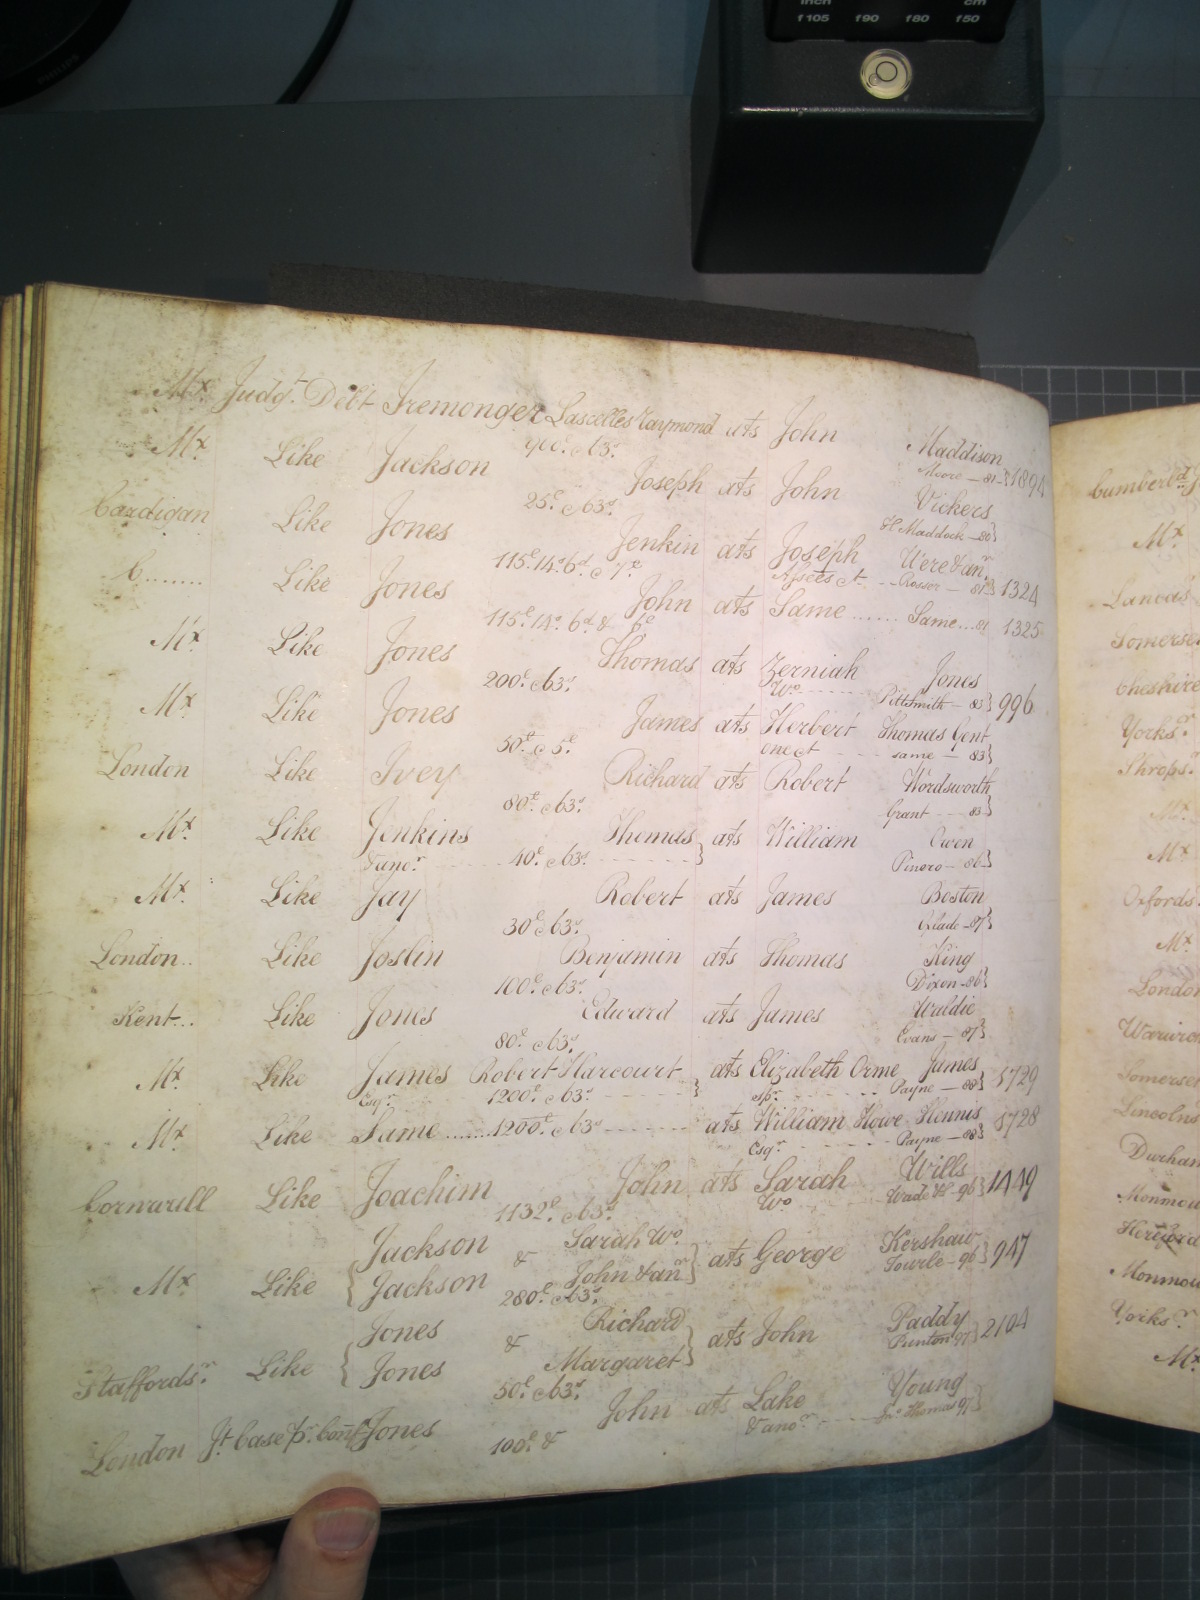 inch cm
f105 f90 f80 f50
Mx Judgt. Debt Iremonger Lascelles Raymond ats John Maddison
Mx Like Jackson 900£ & 63s. Joseph ats John Vickers Moore — 81 } 1894
Cardigan Like Jones 25£ & 63s. Jenkin ats Joseph Were & anr. H Maddock — 80 }
C........ Like Jones 115£ 14s 6d & 7£ John ats Same ...... Same... 81 1325
Assees &c -- Rosser — 81 } 1324
Mx Like Jones 115£ 14s. 6d. & 6£ Thomas ats Zerniah Jones
Mx Like Jones 200£ & 63s. James ats Herbert Thomas Gent
Wo. ------ Pittsmith — 83 } 996
London Like Ivey 50£ & 5£ Richard ats Robert Wordsworth
one &c --- same — 83 }
Mx Like Jenkins 80£ & 63s. Thomas ats William Owen
Grant --- 83 }
& anor. ------ 40£ & 63s. ------ } Pinero — 86 }
Mx Like Jay Robert ats James Boston
30£ & 63s. Oxlade — 87 }
London.. Like Joslin Benjamin ats Thomas King
100£ & 63s. Dixon — 86 }
Kent... Like Jones Edward ats James Waldie
80£ & 63s. Evans — 87 }
Mx Like James Robert Harcourt } ats Elizabeth Orme James
Esqr. 1200£ & 63s ------ spr. ------ Payne — 88 } 1729
Mx Like Same ......1200£ & 63s ------ ats William Howe Hennis 1728
Esqr ------ Payne — 88 }
Cornwall Like Joachim John ats Sarah Wills
1132£ & 63s. Wo Wade H — 96 } 1449
Jackson & Sarah Wo. Kershaw
Mx Like { Jackson John & an } ats George Towle — 96 } 947
280£ & 63s.
Jones & Richard Paddy
Staffords. Like { Jones Margaret } ats John 97 } 2104
50£ & 63s.
London Jt. Case Pr. Cont Jones John ats Lake Young
100£ & & anor. ------ Jno. Thomas 97 }
Cumberld. J
Mx.
Lancas
Somerse
Cheshire
Yorks.
Shrops.
Mx
Mx
Oxfords.
Mx.
London
Warwic
Somerse
Lincolns
Durham
Monmou
Hereford
Monmou
Yorks.
Mx.